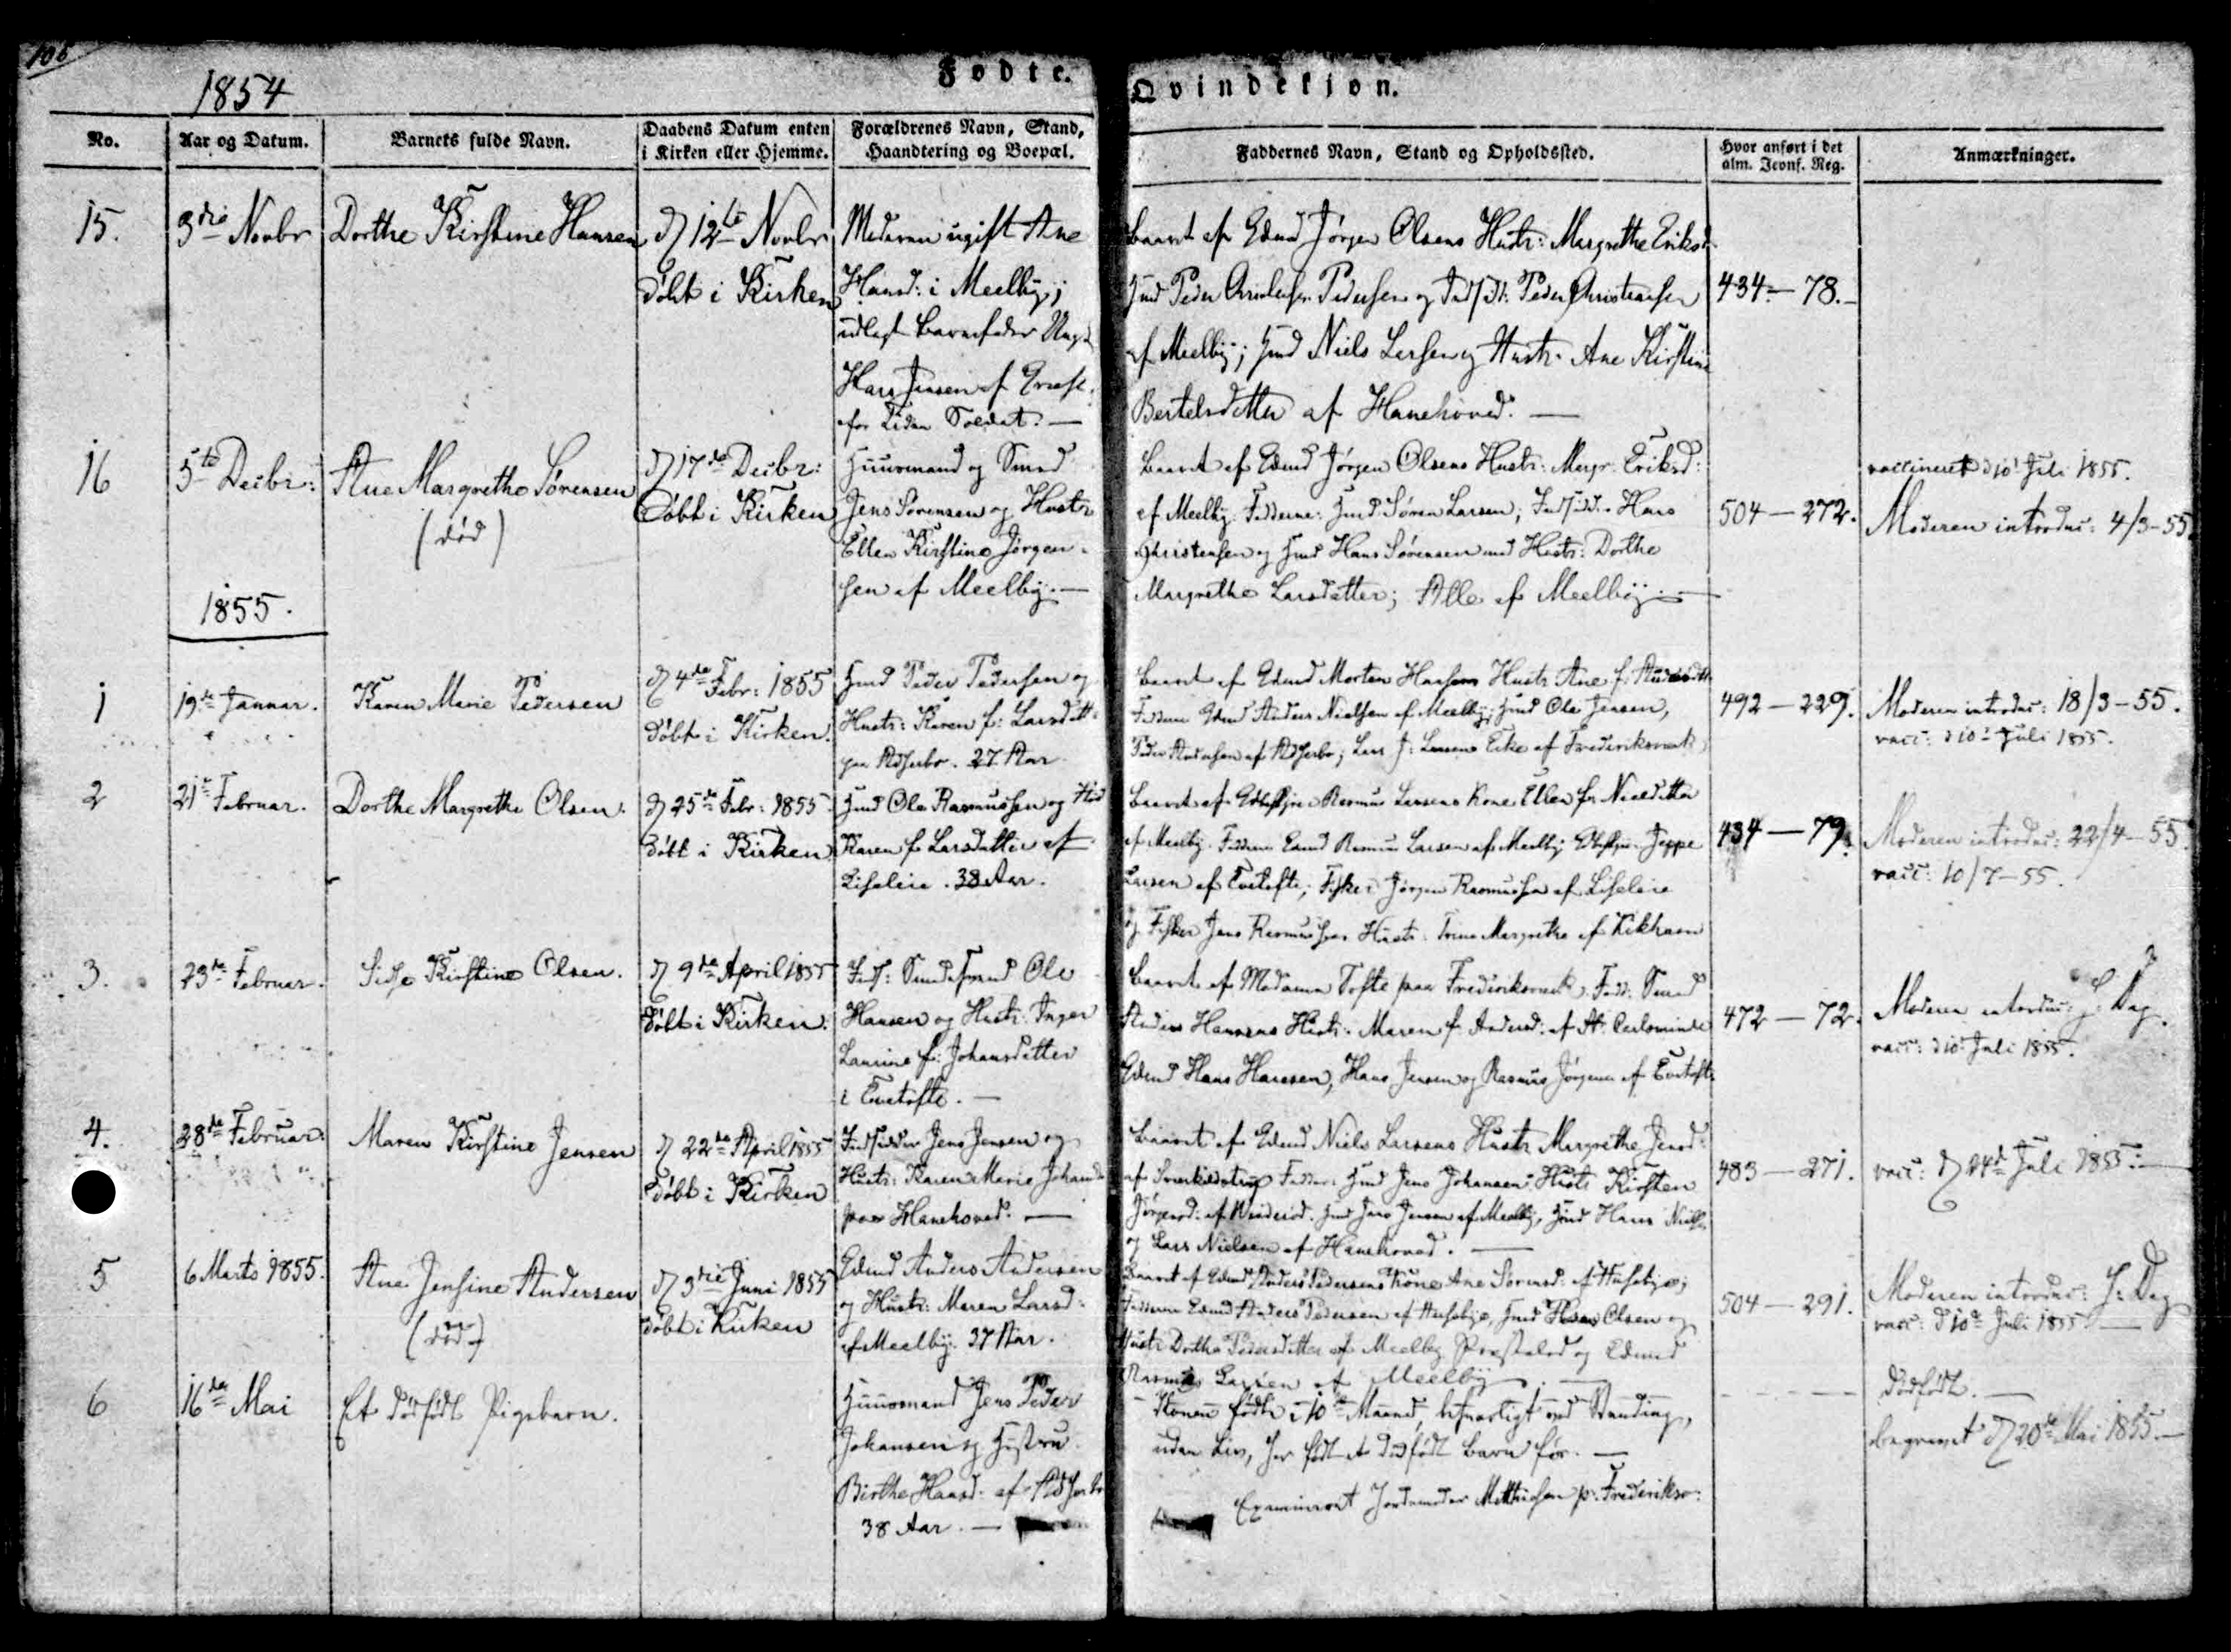 106
1854
Fødte.
Qvindekjøn.
No.
Aar og Datum.
Barnets fulde Navn.
Daabens Datum enten
i Kirken eller Hjemme.
Forældrenes Navn, Stand,
Haandtering og Boepæl.
Faddernes Navn, Stand og Opholdssted.
Hvor anført i det
alm. Jevnf. Reg.
Anmærkninger.
15.
3die Novbr
Dorthe Kirstine Hansen
d 12te Novbr
døbt i Kirken
Moderen ugift Ane
Hansd: i Meelby;
udlagt Barnefader Ungk
Hans Jensen af
for Tiden Soldat. —
baaret af Gdmd Jørgen Olsens Hustr: Margrethe Eriksd
Hmd Peder Pedersen og Indsidd: Peder Christensen
af Meelby; Hmd Niels Larsen og Hustr. Ane Kirstine
Bertelsdatter af Hanehoved. —
434 — 78.
16
5te Decbr:
Ane Margrethe Sørensen
(død)
d 17de Decbr:
døbt i Kirken
Huusmand og Smed
Jens Sørensen og Hustr
Ellen Kirstine Jørgen-
sen af Meelby. —
baaret af Gdmd Jørgen Olsens Hustr: Margr. Eriksd:
af Meelby. Fadderne: Hmd Søren Larsen; Indsidd: Hans
Christensen og Hmd Hans Sørensen med Hustr: Dorthe
Margrethe Larsdatter; Alle af Meelby. —
504 — 272.
vaccineret d 10 Juli 1855.
Moderen introduc: 4/3-55.
1855.
1
19de Januar.
Karen Marie Pedersen
d 4de Febr: 1855
døbt i Kirken.
Hmd Peder Pedersen og
Hustr: Karen f: Larsdatt:
paa Asserbo. 27 Aar
baaret af Gdmd Morten Hansens Hustr Ane f.
Fadderne Gdmd Anders Nielsen af Meelby; Hmd Ole Jensen,
Peder Andersen af Asserbo; Lars J: Larsens Enke af Frederiksværk
492 — 229.
Moderen introduc: 18/3-55.
vacc: d 10 Juli 1855.
2
21de Februar.
Dorthe Margrethe Olsen.
d 25de Febr: 1855
døbt i Kirken
Hmd Ole Rasmussen og
Karen f Larsdatter af
Liseleie. 38 Aar.
baaret af Rasmus Larsens Kone Ellen f. Nielsdatter
af Meelby. Fadderne Gmd Rasmus Larsen af Meelby Jeppe
Larsen af Tvetofte; Fisker Jørgen Rasmussen af Liseleie
og Fisker Jens Rasmussens Hustr: Trine Margrethe af Kikhavn
434 — 79.
Moderen introduc: 22/4-55.
vacc: 10/7-55.
3.
23de Februar.
Sidse Kirstine Olsen.
d 9de April 1855
døbt i Kirken.
Inds: Ole
Hansen og Hustr: Inger
Laurine f: Johansdatter
i Tvetofte. —
baaret af Madame Tofte paa Frederiksværk; Fadd: Smed
Anders Hansens Hustr: Maren f. Andersd: af St:
Gdmd Hans Hansen, Hans Jensen og Rasmus Jørgensen af Tvetofte
472 — 72.
Moderen introduc: J: Dag.
vacc: d 10 Juli 1855.
4.
28de Februar:
Maren Kirstine Jensen
d 22de April 1855
døbt i Kirken
Indsidder Jens Jensen og
Hustr: Karen Marie Johansd
paa Hanehoved. —
baaret af Gdmd Niels Larsens Hustr Margrethe Jensd:
af Fadder: Hmd Jens Johansens Hustr Kirsten
Jørgensd: af Hmd Jens Jensen af Meelby, Hmd Hans
og Lars Nielsen af Hanehoved. —
483 — 271.
vacc: d 24de Juli 1855. —
5
6 Marts 1855.
Ane Jensine Andersen
(død)
d 3die Juni 1855
døbt i Kirken
Gdmd Anders Andersen
og Hustr: Maren Larsd:
af Meelby. 37 Aar.
baaret af Gdmd Anders Pedersens Kone Ane Sørensd:
Fadderne Gdmd Anders Pedersen af Hmd Hans Olsen og
Hustr Dorthe Pedersdatter af Meelby Præstelod og Gdmd
Rasmus Larsen af Meelby. —
504 — 291.
Moderen introduc: J: Dag
vacc: d 10de Juli 1855. —
6
16de Mai
Et dødfødt Pigebarn.
Huusmand Jens Peder
Johansen og Hustru
Birthe Hansd: af Asserbo
38 Aar. —
Konen fødte i 10de Maaned,
uden Liv, har født et dødfødt Barn før. —
Examineret Jordemoder Mathiesen p. Frederiksv:
dødfødt. —
begravet d 20de Mai 1855. —